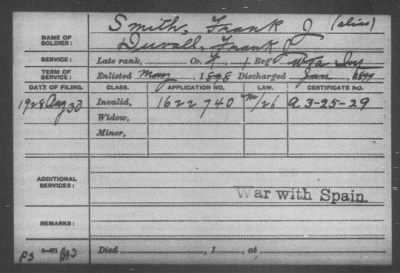 NAME OF SOLDIER: Smith, Frank J (alias)
Duvall, Frank
SERVICE: Late rank, Co. F, 1 Reg't W Va Inf
TERM OF SERVICE: Enlisted May 1898 Discharged Jan 1899
DATE OF FILING. CLASS. APPLICATION NO. LAW. CERTIFICATE NO.
1928 Aug 30 Invalid, 1622740 /26 A 3-25-29
Widow,
Minor,
ADDITIONAL SERVICES:
War with Spain.
REMARKS:
PS
Died , 1 , at